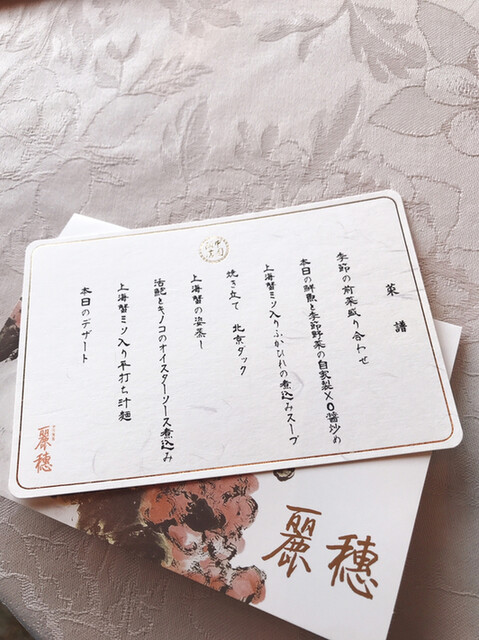 菜譜
季節の前菜盛り合わせ
本日の鮮魚と季節野菜の自家製XO醤炒め
上海蟹ミソ入りふかひれの煮込みスープ
焼き立て 北京ダック
上海蟹の姿蒸し
活鮑とキノコのオイスターソース煮込み
上海蟹ミソ入り平打ち汁麺
本日のデザート
麗穂
麗穂